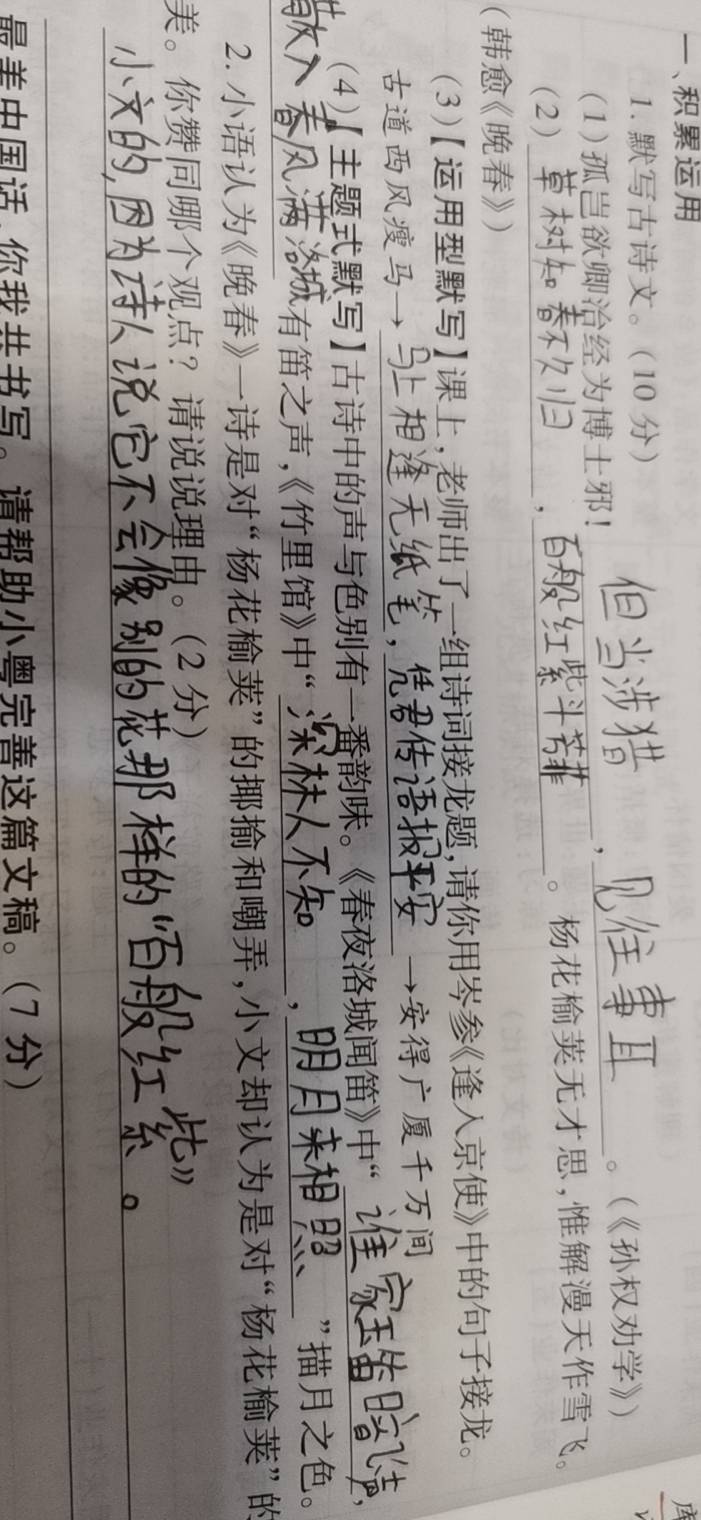 一、积累运用
1. 默写古诗文。(10 分)
(1)孤岂欲卿治经为博士邪!但当涉猎,见往事耳。(《孙权劝学》)
(2)草树知春不久归,百般红紫斗芳菲。杨花榆荚无才思,惟解漫天作雪飞。
(韩愈《晚春》)
(3)【运用型默写】课上,老师出了一组诗词接龙题,请你用岑参《逢入京使》中的句子接龙。
古道西风瘦马→马上相逢无纸笔,凭君传语报平安→安得广厦千万间
(4)【主题式默写】古诗中的声与色别有一番韵味。《春夜洛城闻笛》中“谁家玉笛暗飞声,
散入春风满洛城有笛之声,《竹里馆》中“深林人不知,明月来相照”描月之色。
2. 小语认为《晚春》一诗是对“杨花榆荚”的揶揄和嘲弄,小文却认为是对“杨花榆荚”的
美。你赞同哪个观点?请说说理由。(2 分)
小文的,因为诗人说它不会像别的花那样的“百般红紫”。
最美中国话,你我共书写。请帮助小粤完善这篇文稿。(7 分)